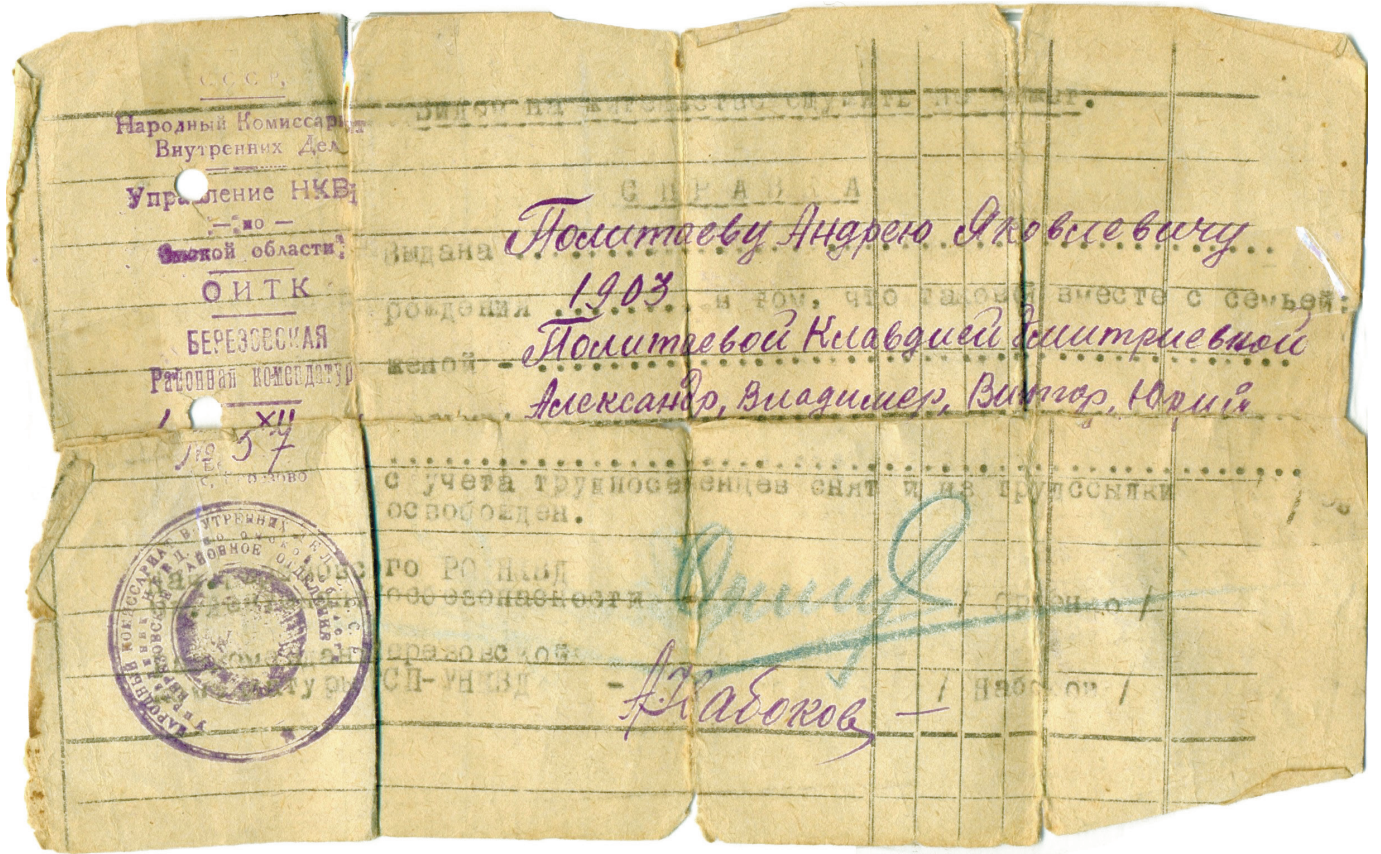 С С С Р.
Народный Комиссариат
Внутренних Дел
Управление НКВД
— по —
Омской области
ОИТК
БЕРЕЗОВСКАЯ
Районная комендатур
XII
Видом на жительство служить не может.
СПРАВКА
Выдана Политаеву Андрею Яковлевичу
рождения 1903 в том, что таковой вместе с семьей:
женой - Политаевой Клавдией Дмитриевной
Александр, Владимер, Виктор, Юрий
с учета трудпоселенцев снят и из трудссылки
освобожден.
РО НКВД
госбезопасности
Березовской
СП-УНКВД - АНабоков / Набоков /
НАРОДНЫЙ КОМИССАРИАТ ВНУТРЕННИХ ДЕЛ С.С.С.Р.
БЕРЕЗОВСКОЕ РАЙОННОЕ ОТДЕЛЕНИЕ